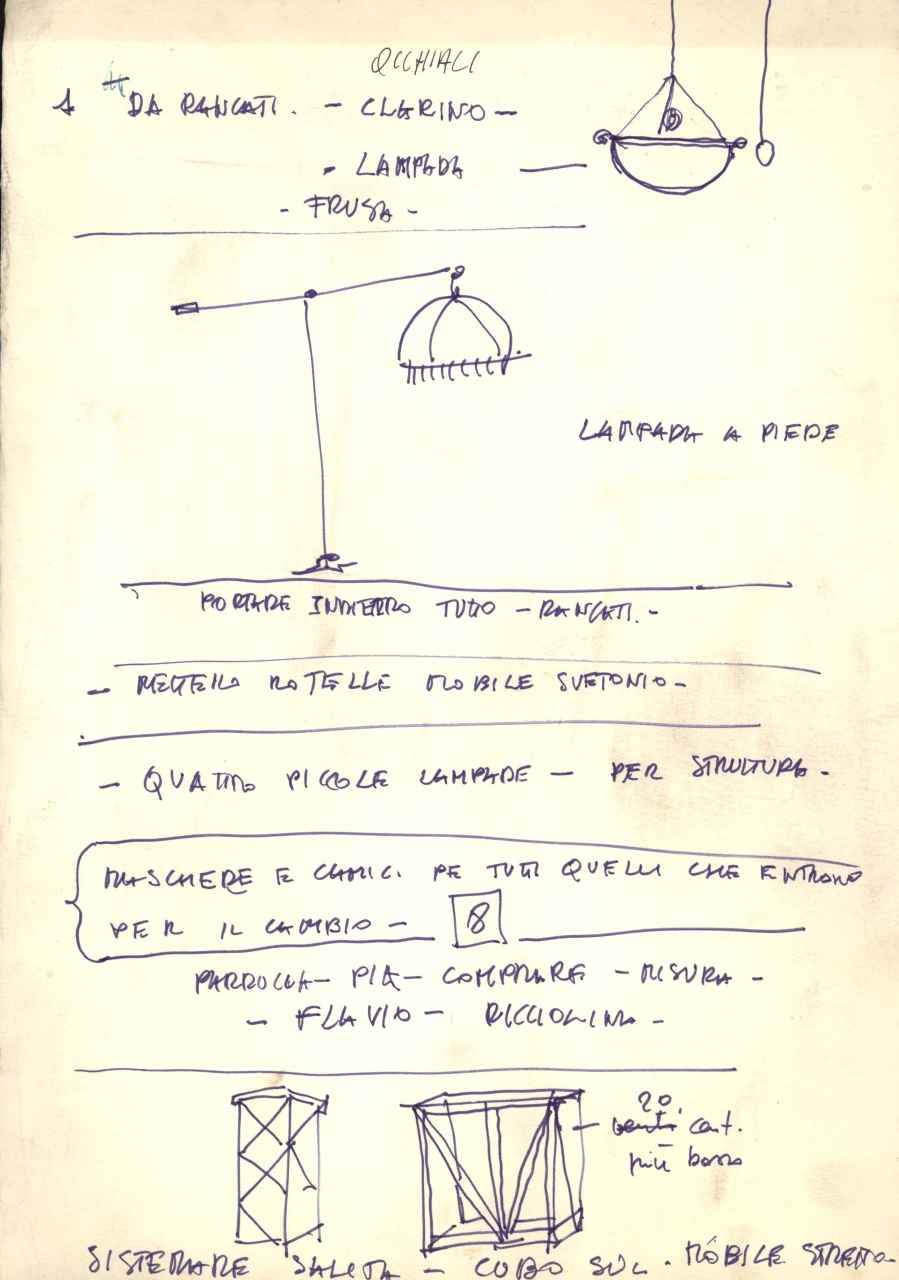 OCCHIALI
1 DA RANCATI. - CLARINO -
- LAMPADA
- FRUSTA -
LAMPADA A PIEDE
PORTARE INDIETRO TUTTO - RANCATI. -
- METTERE ROTELLE MOBILE SVETONIO -
- QUATTRO PICCOLE LAMPADE - PER STRUTTURA -
MASCHERE E CAMICI PE TUTTI QUELLI CHE ENTRANO
PER IL CAMBIO - 8
PARRUCCA - PIA - COMPRARE - MISURA -
- FLAVIO - RICCIOLINA -
20
venti cent.
più basso
SISTEMARE SALITA - CUBO SUL MOBILE STRETTO -